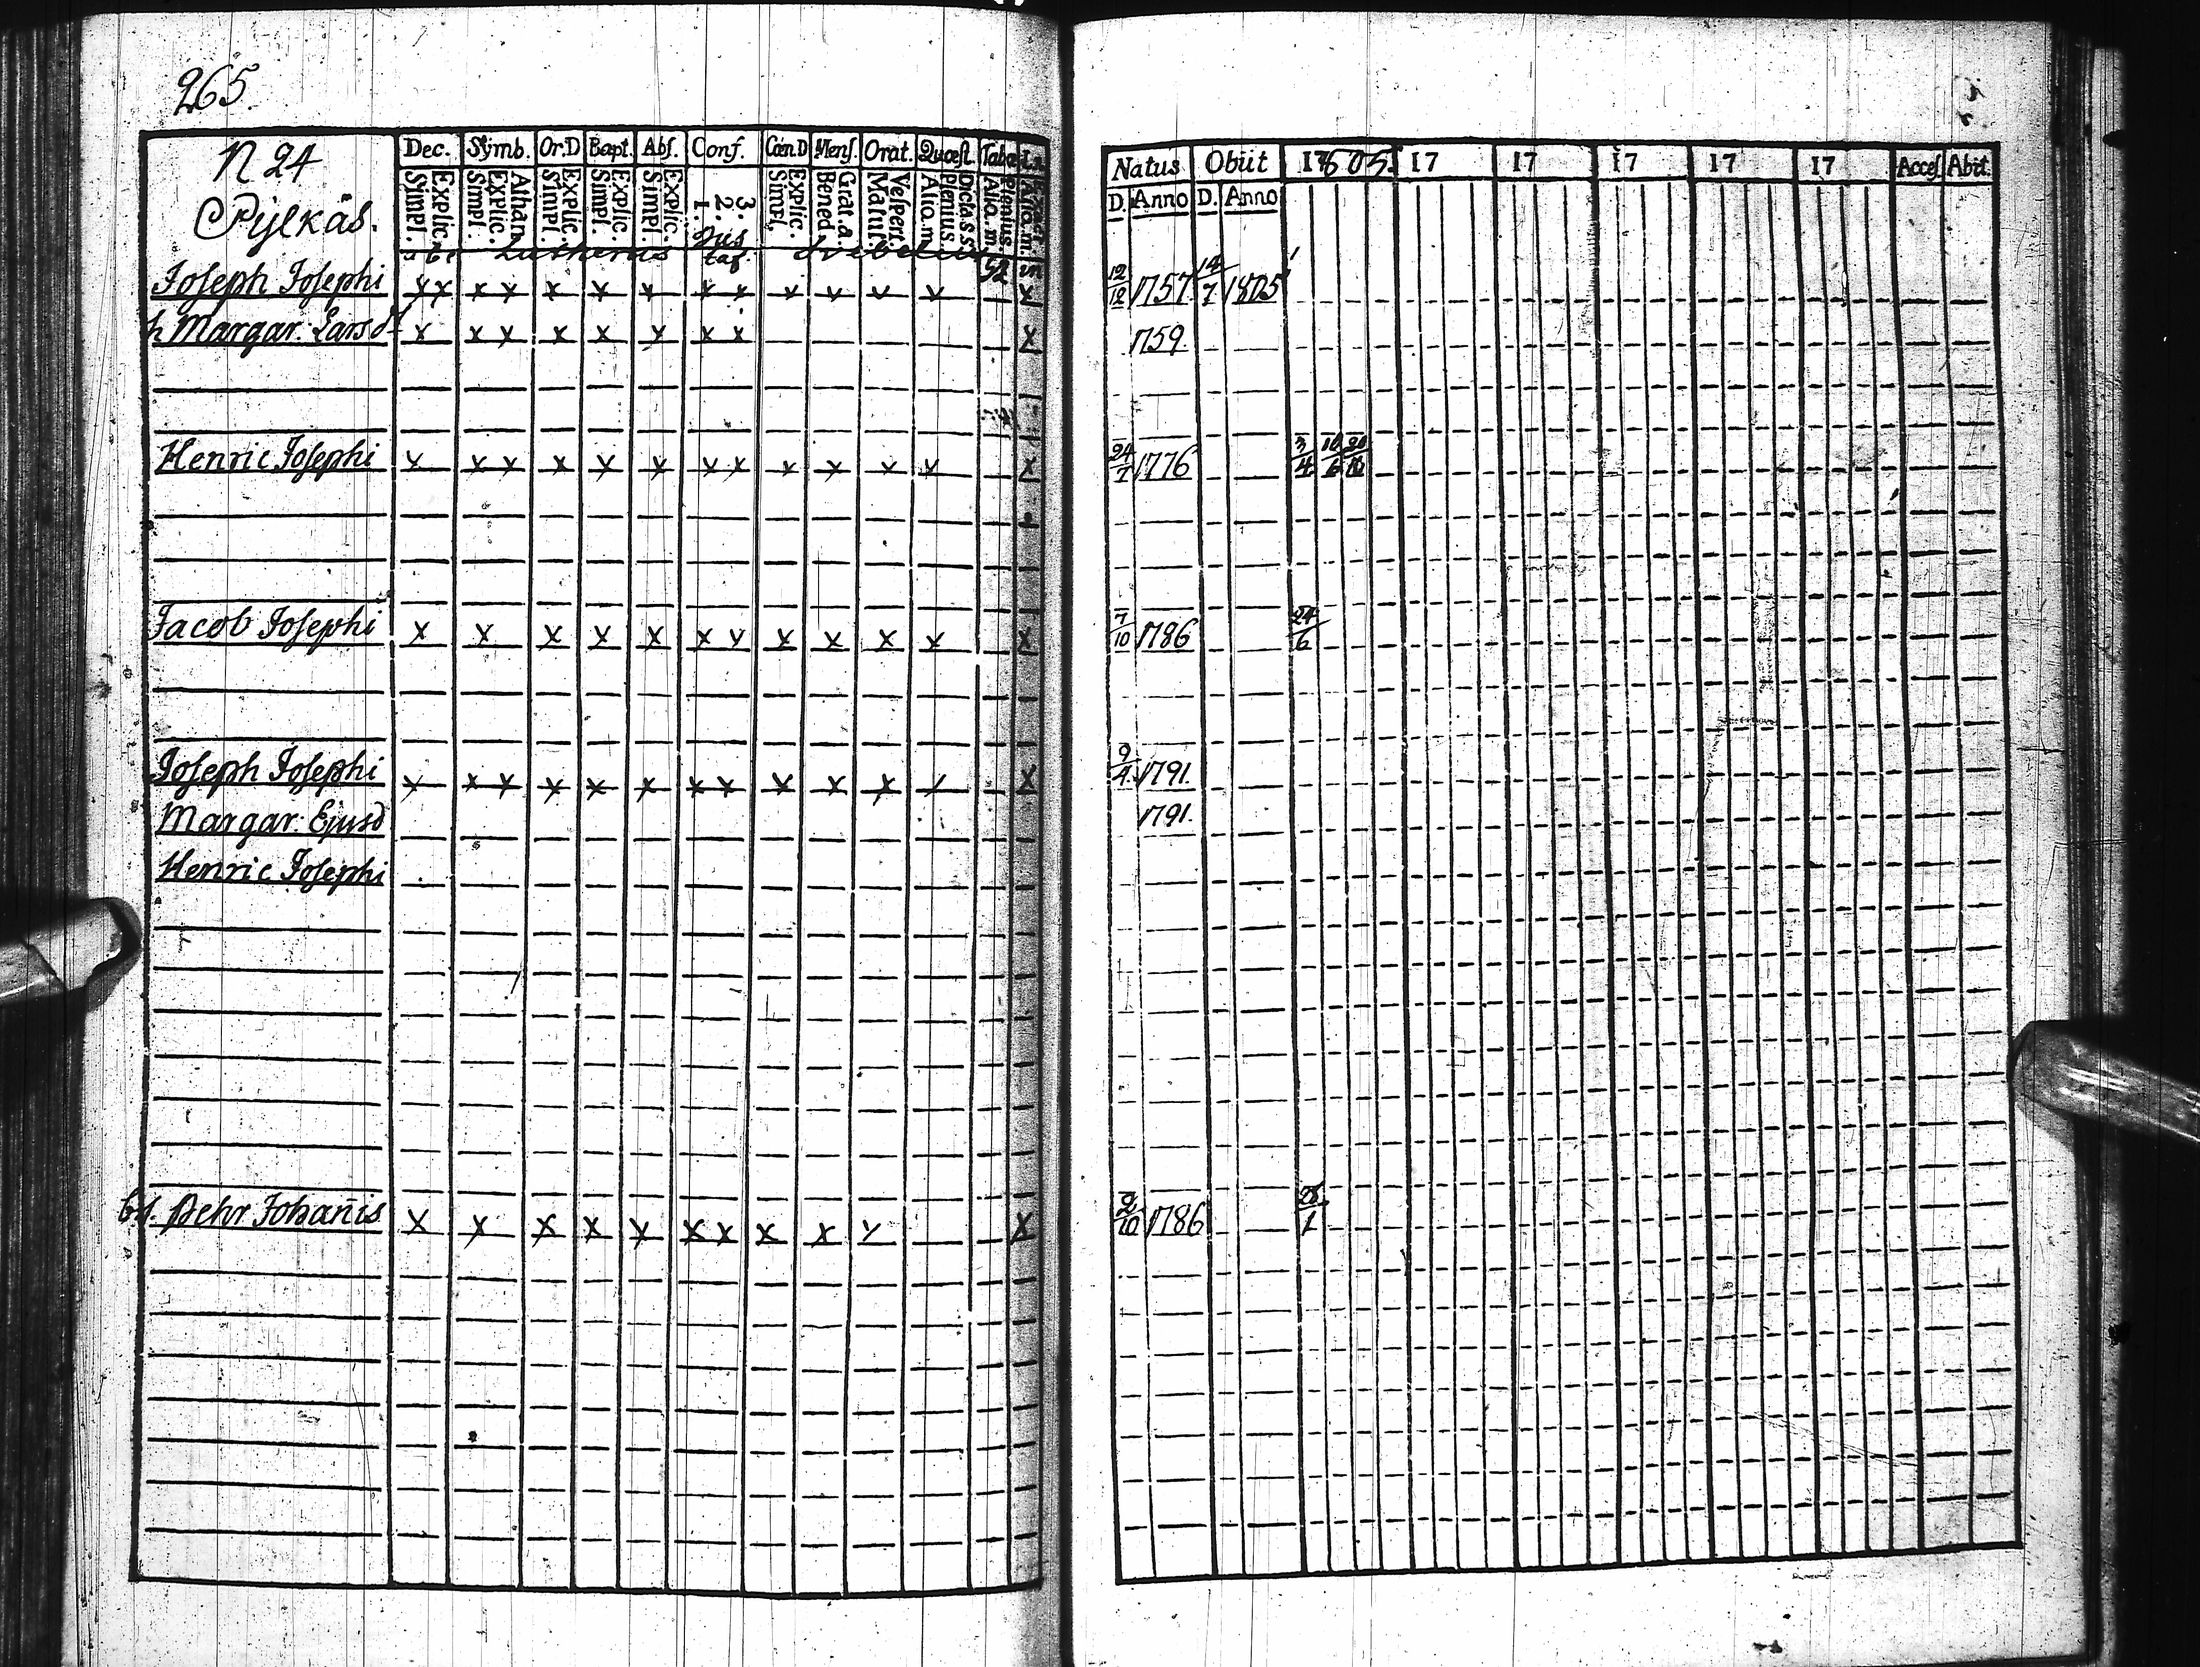 265.
N 24
Pylkäs.
Dec. Symb. Or.D Bapt. Abs. Conf. Cœn.D Mens. Orat. Quæst. Tabæ
Simpl. Explic. Simpl. Explic. Athan. Simpl. Explic. Simpl. Explic. Simpl. Explic. 1. 2. 3. Simpl. Explic. Bened. Grat.a. Matut. Vespert. Alio.m. Plenius. Dicta.S.S. Alio.m. Plenius.
Lutherus
Joseph Josephi x x x x x x x x x x x x x x
h Margar. Larsdr x x x x x x x x x
Henric Josephi x x x x x x x x x x x x x
Jacob Josephi x x x x x x x x x x x x
Joseph Josephi x x x x x x x x x x x / x
Margar. Ejusd
Henric Josephi
Pehr Johanis x x x x x x x x x x x
Natus Obiit 17 805. 17 17 17 17 17 Acces. Abit.
D. Anno D. Anno
12/12 1757 14/7 1805
1759.
24/7 1776 3/4 16/6
7/10 1786 24/6
9/4 1791.
1791.
2/10 1786 28/1